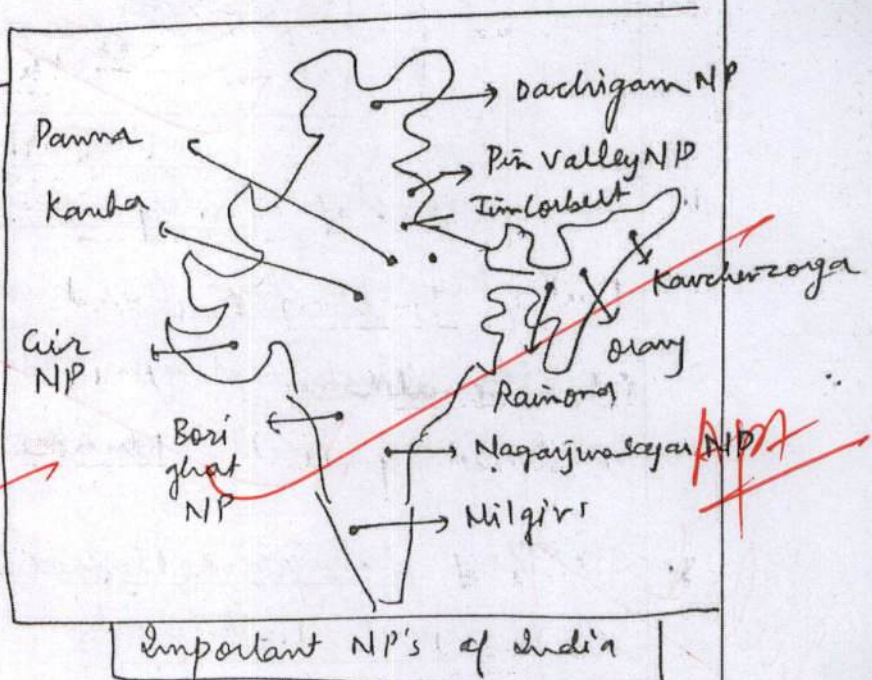 Dachigam NP
Panna
Pin Valley NP
Kanha
Jim Corbett
Kanchenzonga
Gir
NP
Orang
Raimona
Bori
ghat
NP
Nagarjunasagar NP
Nilgiri
Important NP's of India